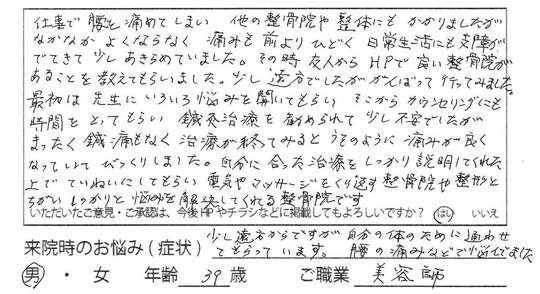 仕事で腰を痛めてしまい 他の整骨院や整体にもかかりましたが
なかなかよくならなく 痛みも前よりひどく 日常生活にも支障が
でてきて少しあきらめていました。その時友人からHPで良い整骨院が
あることを教えてもらいました。少し遠方でしたががんばって行ってみました。
最初は先生にいろいろ悩みを聞いてもらい そこからカウンセリングにも
時間をとってもらい 鍼灸治療を勧められて少し不安でしたが
まったく鍼痛もなく治療が終ってみるとうそのように痛みが良く
なっていてびっくりしました。自分に合った治療をしっかり説明してくれた
上でていねいにしてもらい 電気やマッサージをくり返す整骨院や整形と
ちがいしっかりと悩みを解決してくれる整骨院です
いただいたご意見・ご承認は、今後HPやチラシなどに掲載してもよろしいですか? はい いいえ
来院時のお悩み(症状) 少し遠方からですが自分の体のために通わせ
てもらっています。 腰の痛みなどで悩んでました
男・女 年齢 39歳 ご職業 美容師